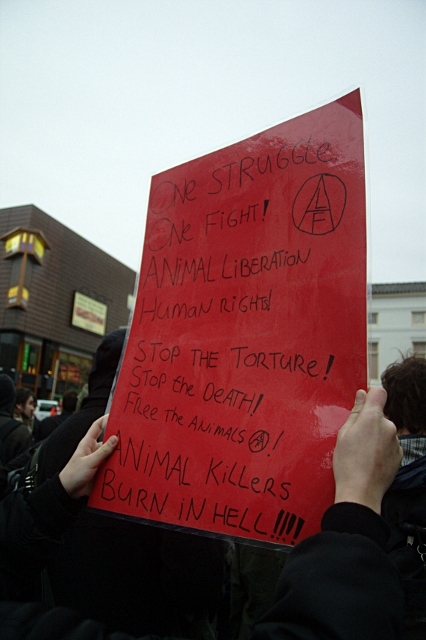 ONE STRUGGLE
ONE FIGHT!
ALF
ANiMAL LiBERATiON
HUMAN RiGHt!
STOP THE TORTURE!
STOP the DEATH!
FREE the ANiMALS Ⓐ!
ANiMAL KiLLERS
BURN iN HELL!!!!